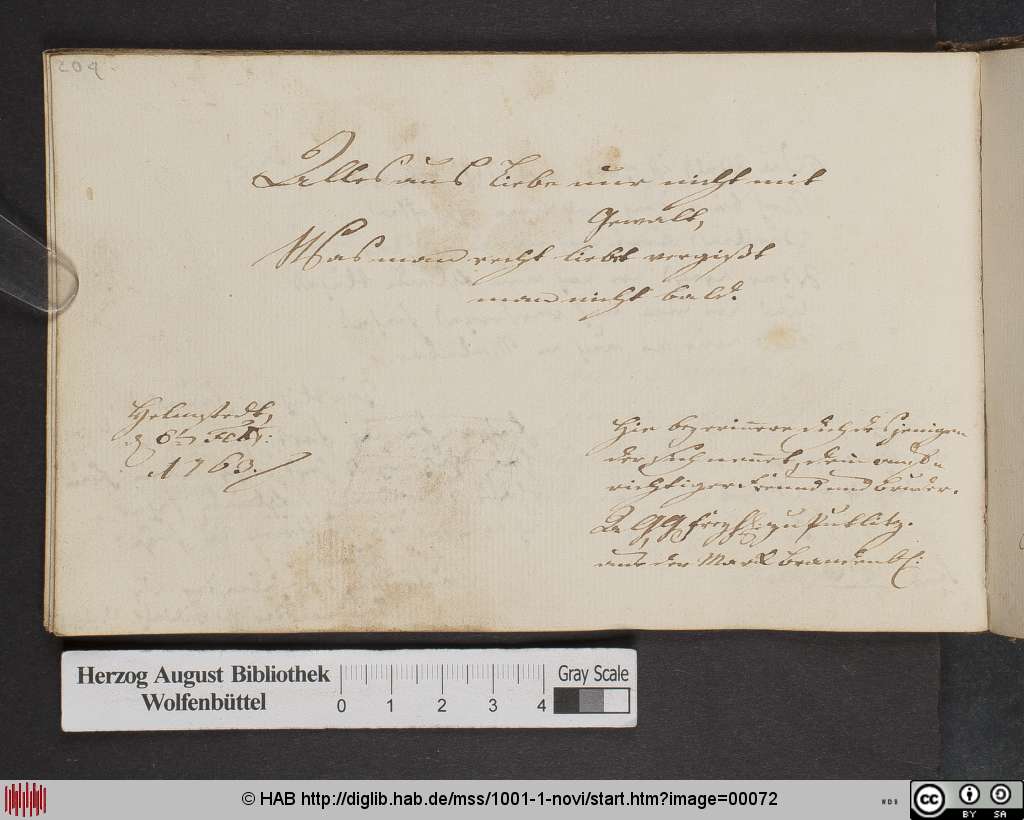 204.
Alles aus Liebe nur nicht mit
Gewalt,
Was man recht liebt vergißt
man nicht bald.
Helmstedt,
d 6t Feb:
1763.
Hie bey erinnere dich desjenigen
der sich nennet, dein auf-
richtiger Freund und Bruder.
zu Putlitz.
aus der Mark Brandenb:
Herzog August Bibliothek
Wolfenbüttel
0 1 2 3 4
Gray Scale
© HAB http://diglib.hab.de/mss/1001-1-novi/start.htm?image=00072
cc BY SA